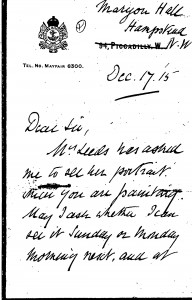 4
Maryon Hall
Hampstead
54, PICCADILLY, W. N.W
TEL. No. MAYFAIR 6300.
Dec. 17. 15
Dear Sir,
Mrs Leeds has asked
me to see her portrait
which you are painting.
May I ask whether I can
see it Sunday or Monday
morning next, and at